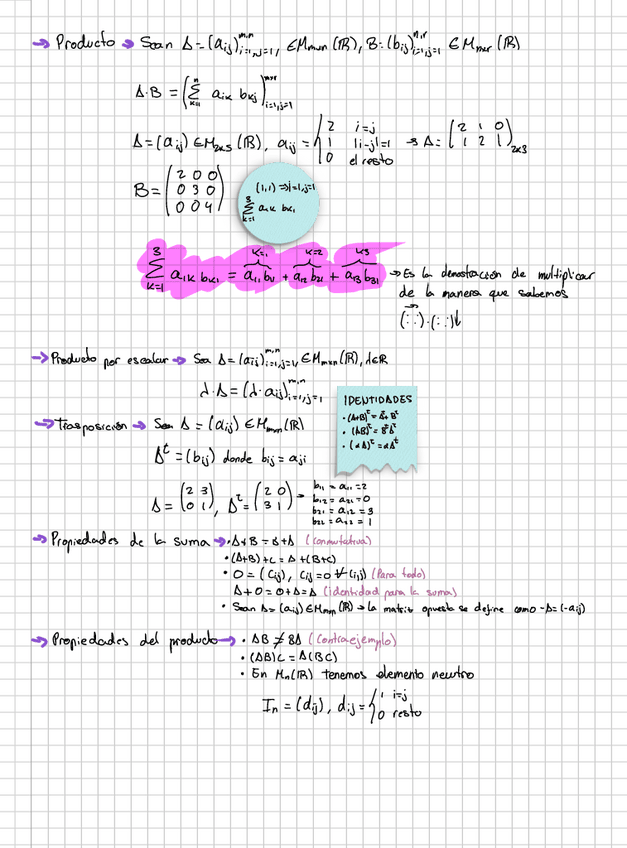 → Producto → Sean A=(aij)^{m,n}_{i=1,j=1}, ∈ Mmxn(ℝ), B=(bij)^{n,r}_{i=1,j=1} ∈ Mnxr(ℝ)
A·B = (∑^{n}_{k=1} aik bkj)^{m,r}_{i=1,j=1}
A=(aij) ∈ M2x3(ℝ), aij = { 2 i=j
1 |i-j|=1
0 el resto
→ A= (2 1 0
1 2 1)2x3
B= (2 0 0
0 3 0
0 0 4)
(1,1) ⇒ i=1, j=1
∑^{3}_{k=1} a1k bk1
k=1 k=2 k=3
∑^{3}_{k=1} a1k bk1 = a11 b11 + a12 b21 + a13 b31
→ Es la demostración de multiplicar
de la manera que sabemos
(: :)·(: :)↓
→ Producto por escalar → Sea A=(aij)^{m,n}_{i=1,j=1}, ∈ Mmxn(ℝ), λ∈ℝ
λ·A=(λ·aij)^{m,n}_{i=1,j=1}
→ Trasposición → Sea A=(aij) ∈ Mmxn(ℝ)
A^t =(bij) donde bij = aji
IDENTIDADES
· (A+B)^t = A^t+B^t
· (AB)^t = B^t A^t
· (αA)^t = αA^t
A= (2 3
0 1), A^t = (2 0
3 1) →
b11 = a11 = 2
b12 = a21 = 0
b21 = a12 = 3
b22 = a22 = 1
→ Propiedades de la suma → · A+B = B+A (conmutativa)
· (A+B)+C = A+(B+C)
· O = (cij), cij = 0 ∀(i,j) (Para todo)
A+O = O+A = A (identidad para la suma)
· Sean A=(aij) ∈ Mmxn(ℝ) → la matriz opuesta se define como -A=(-aij)
→ Propiedades del producto → · AB ≠ BA (contraejemplo)
· (AB)C = A(BC)
· En Mn(ℝ) tenemos elemento neutro
In = (dij), dij = { 1 i=j
0 resto